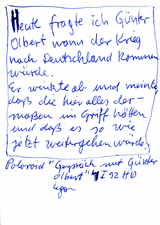 Heute fragte ich Günter
Olbert wann der Krieg
nach Deutschland kommen
würde.
Er winkte ab und meinte
daß die hier alles der-
maßen im Griff hätten
und daß es so wie
jetzt weitergehen würde.
Polaroid "Gespräch mit Günter
Olbert" 4 I 92 HD